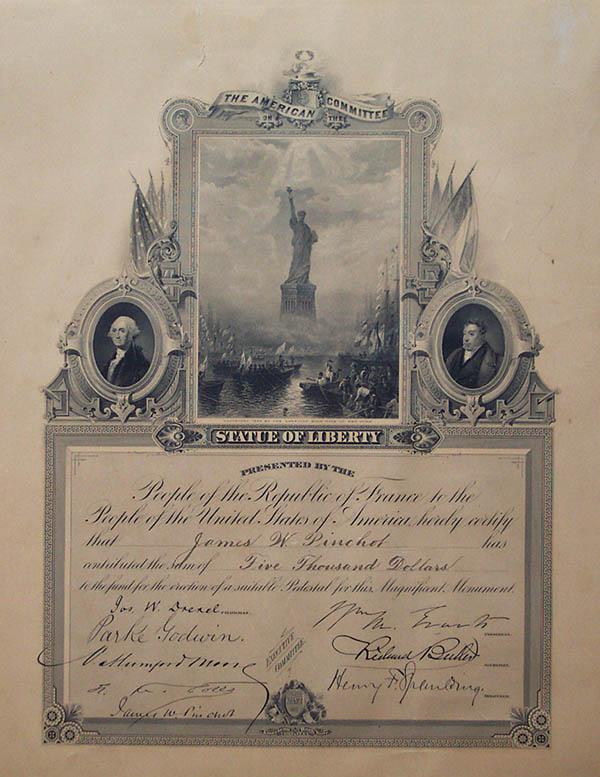 THE AMERICAN COMMITTEE
ON THE
STATUE OF LIBERTY
PRESENTED BY THE
People of the Republic of France to the
People of the United States of America, hereby certify
that James W. Pinchot has
contributed the sum of Five Thousand Dollars
to the fund for the erection of a suitable Pedestal for this Magnificent Monument.
Jos. W. Drexel CHAIRMAN.
Wm M. Evarts PRESIDENT.
Parke Godwin.
EXECUTIVE COMMITTEE
Richard Butler SECRETARY.
Henry F. Spaulding. TREASURER.
James W. Pinchot